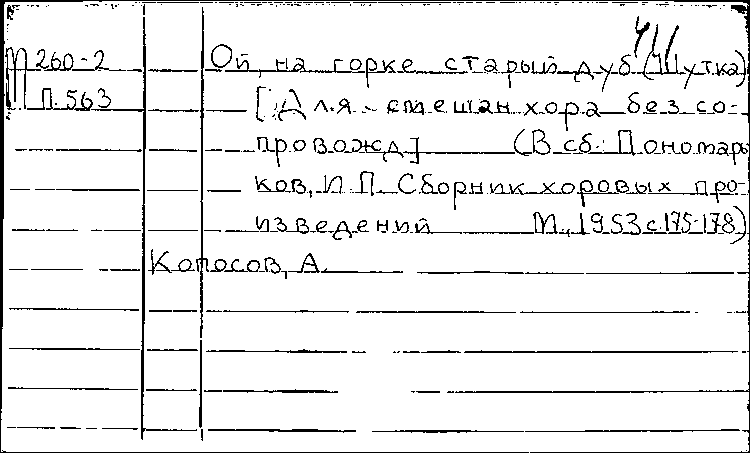 М 260-2 Ой, на горке старый дуб (Шутка)
П.563 [Для смешан хора без со-
провожд] (В сб: Пономарь
ков, И.П. Сборник хоровых про-
изведений М., 1953 с.175-178)
Колосов, А.